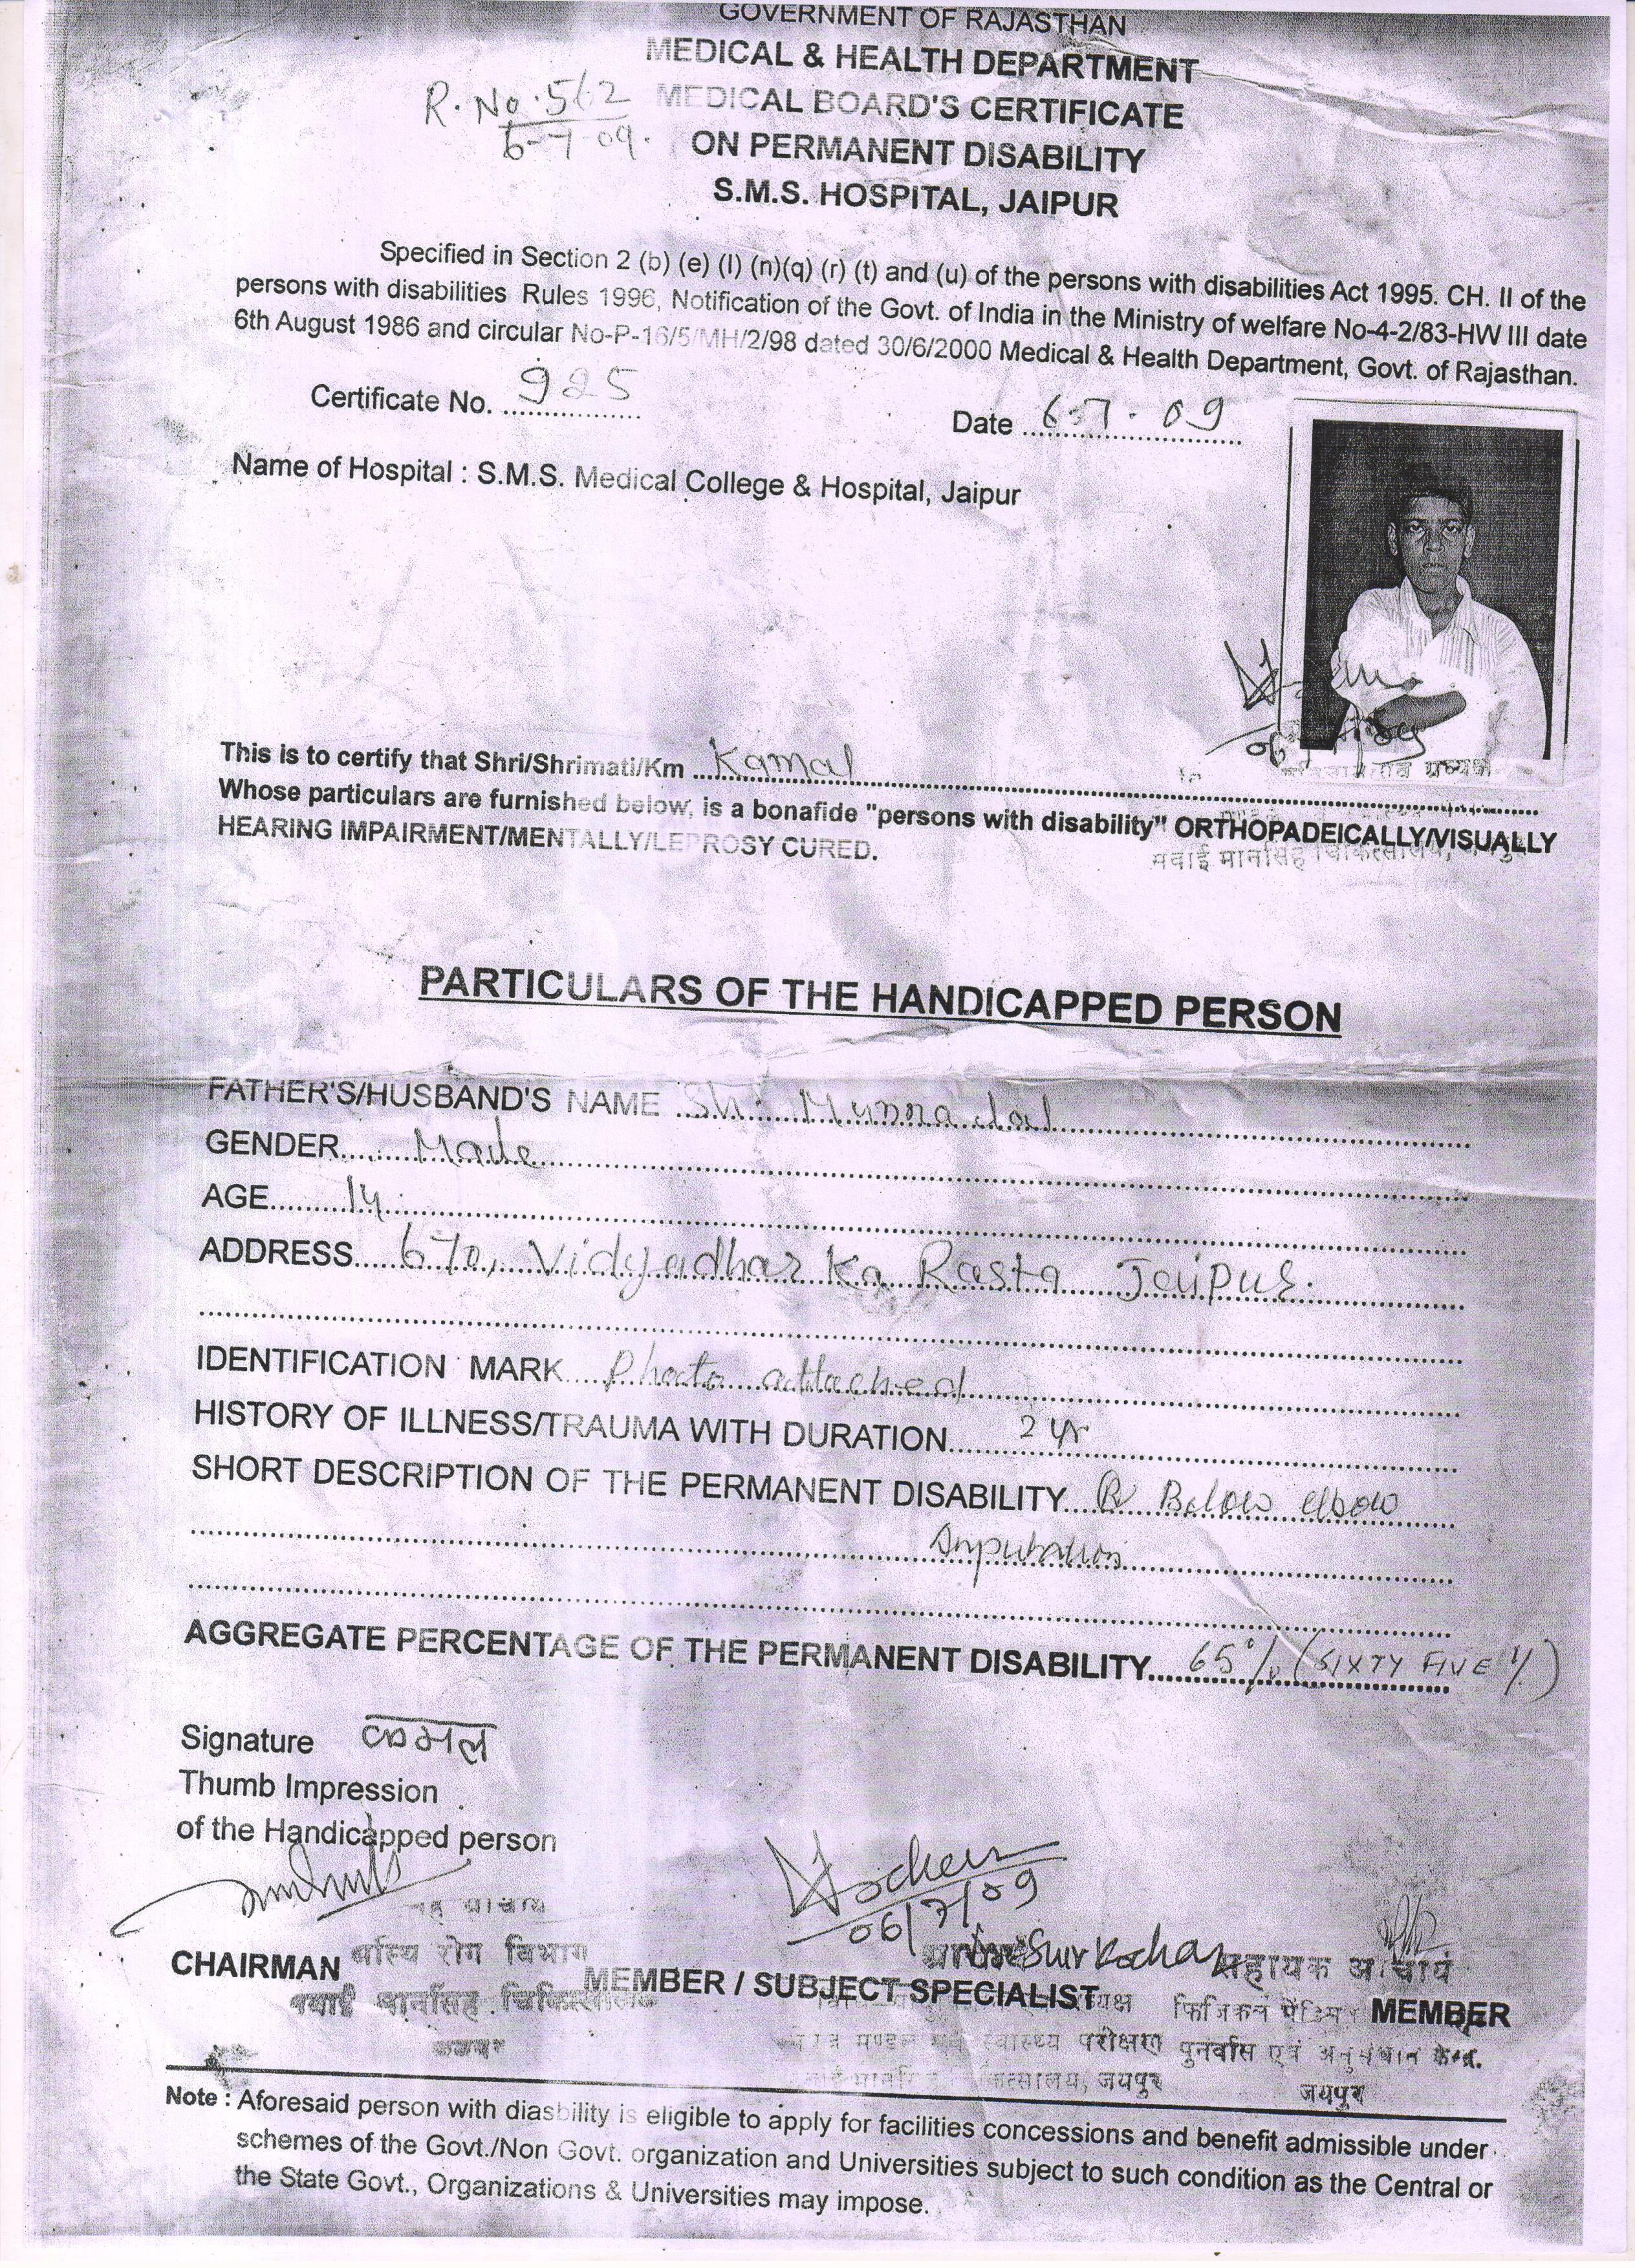 GOVERNMENT OF RAJASTHAN
MEDICAL & HEALTH DEPARTMENT
R. No. 562
MEDICAL BOARD'S CERTIFICATE
6-7-09.
ON PERMANENT DISABILITY
S.M.S. HOSPITAL, JAIPUR
Specified in Section 2 (b) (e) (l) (n)(q) (r) (t) and (u) of the persons with disabilities Act 1995. CH. II of the
persons with disabilities Rules 1996, Notification of the Govt. of India in the Ministry of welfare No-4-2/83-HW III date
6th August 1986 and circular No-P-16/5/MH/2/98 dated 30/6/2000 Medical & Health Department, Govt. of Rajasthan.
Certificate No. 925
Date 6-7-09
Name of Hospital : S.M.S. Medical College & Hospital, Jaipur
This is to certify that Shri/Shrimati/Km Kamal
Whose particulars are furnished below, is a bonafide "persons with disability" ORTHOPADEICALLY/VISUALLY
HEARING IMPAIRMENT/MENTALLY/LEPROSY CURED.
सवाई मानसिंह चिकित्सालय,
PARTICULARS OF THE HANDICAPPED PERSON
FATHER'S/HUSBAND'S NAME Sh. Munna Lal
GENDER Male
AGE 14
ADDRESS 670, Vidyadhar Ka Rasta Jaipur.
IDENTIFICATION MARK Photo attached
HISTORY OF ILLNESS/TRAUMA WITH DURATION 2 yr
SHORT DESCRIPTION OF THE PERMANENT DISABILITY Below elbow
Amputation
AGGREGATE PERCENTAGE OF THE PERMANENT DISABILITY 65% (SIXTY FIVE %)
Signature कमल
Thumb Impression
of the Handicapped person
06/7/09
CHAIRMAN
रोग विभाग
MEMBER / SUBJECT SPECIALIST
सहायक आचार्य
MEMBER
स्वास्थ्य परीक्षण
पुनर्वास एवं अनुसंधान केन्द्र.
जयपुर
जयपुर
Note : Aforesaid person with diasbility is eligible to apply for facilities concessions and benefit admissible under
schemes of the Govt./Non Govt. organization and Universities subject to such condition as the Central or
the State Govt., Organizations & Universities may impose.